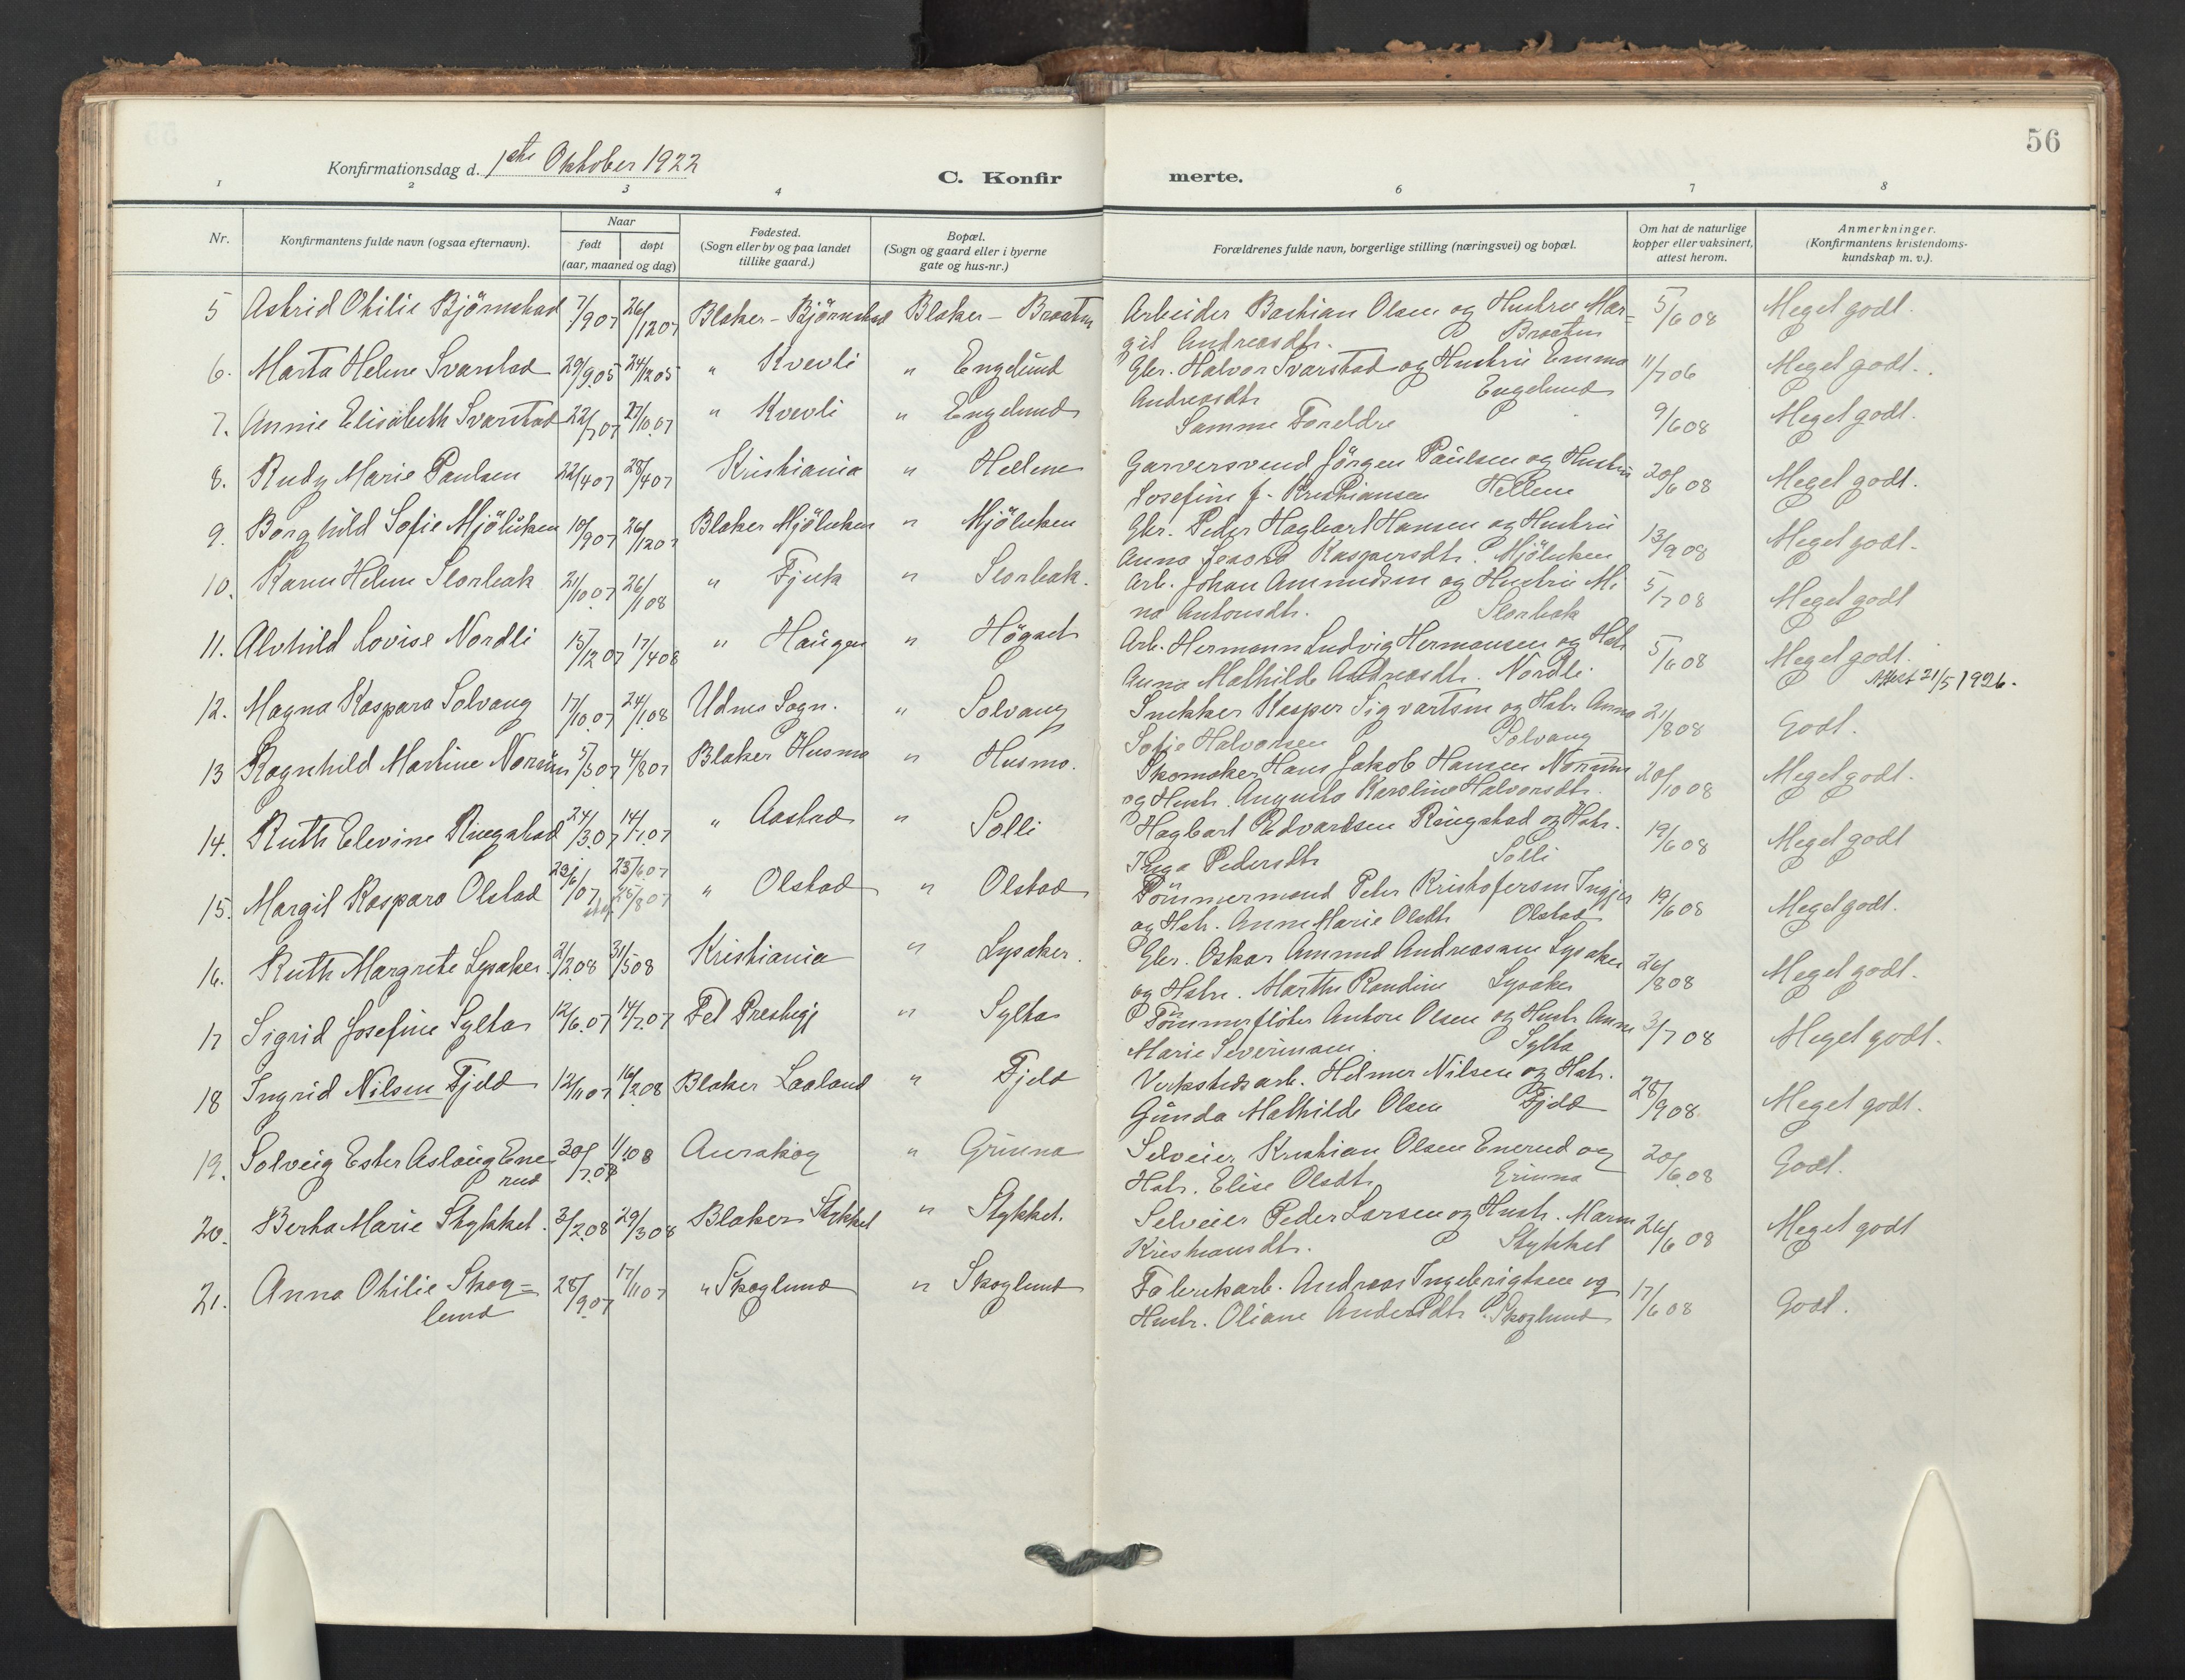 56
Konfirmationsdag d. 1ste Oktober 1922
C. Konfirmerte.
1 2 3 4 6 7 8
Nr.
Konfirmantens fulde navn (ogsaa efternavn).
Naar
født døpt
(aar, maaned og dag)
Fødested.
(Sogn eller by og paa landet
tillike gaard.)
Bopæl.
(Sogn og gaard eller i byerne
gate og hus-nr.)
Forældrenes fulde navn, borgerlige stilling (næringsvei) og bopæl.
Om hat de naturlige
kopper eller vaksinert,
attest herom.
Anmerkninger.
(Konfirmantens kristendoms-
kundskap m. v.).
5 Astrid Othilie Björnstad 7/9 07 26/12 07 Blaker - Björnstad Blaker - Braaten Arbeider Bastian Olsen og Hustru Mar= 5/6 08 Meget godt.
git Andreasdtr. Braaten
6. Marta Helene Svarstad 29/9 05 24/12 05 " Kvevli " Engelund Gbr. Halvor Svarstad og Hustru Emma 11/7 06 Meget godt.
Andreasdtr Engelund
7. Annie Elisabeth Svarstad 22/7 07 27/10 07 " Kvevli " Engelund Samme Foreldre 9/6 08 Meget godt.
8. Rudy Marie Paulsen 22/4 07 28/4 07 Kristiania " Hellene Garversvend Jörgen Paulsen og Hustru 20/6 08 Meget godt.
Josefine f. Kristiansen Hellene
9. Borghild Sofie Mjölüken 10/9 07 26/12 07 Blaker Mjöluken " Mjöluken Gbr. Peder Hagbart Hansen og Hustru 13/9 08 Meget godt.
Anna Kaspersdtr. Mjöluken
10. Karen Helene Storbak 21/10 07 26/1 08 " Fjuk " Storbak. Arb. Johan Amundsen og Hustru Mi 5/7 08 Meget godt
na Antonsdtr. Storbak
11. Alvhild Lovise Nordli 15/12 07 17/4 08 " Haugen " Högset Arb. Hermann Ludvig Hermansen og Hstr 5/6 08 Meget godt.
Anna Mathilde Andreasdtr. Nordli Attest 21/5 1926.
12. Magna Kaspara Solvang 17/10 07 24/1 08 Udnes Sogn. " Solvang Snekker Kasper Sigvartsen og Hstr. Anna 21/8 08 Godt.
Sofie Halvorsen Solvang
13 Ragnhild Martine Norum 5/5 07 4/8 07 Blaker Husmo " Husmo. Skomaker Hans Jakob Hansen Norum 20/10 08 Meget godt.
og Hustr. Augusta Karoline Halvorsdtr.
14. Ruth Elevine Ringstad 24/3 07 14/7 07 " Aastad " Solli Hagbart Edvardsen Ringstad og Hstr. 19/6 08 Meget godt
Inga Pedersdtr Solli
15. Margit Kaspara Olstad 23/6 07 23/6 07 25/8 07 " Olstad " Olstad Tömmermand Peter Kristofersen 19/6 08 Meget godt.
og Hstr. Anne Marie Olsdtr Olstad
16. Ruth Margrete Lysaker 2/2 08 31/5 08 Kristiania " Lysaker. Gbr. Oskar Amund Andreassen Lysaker 26/8 08 Meget godt.
og Hstru. Marthe Randine Lysaker
17 Sigrid Josefine Sylta 12/6.07 14/7.07 Fet Prestegj " Sylta Tömmerflöter Anton Olsen og Hustr Anne 3/7 08 Meget godt.
Marie Severinsen. Sylta
18 Ingrid Nilsen Fjeld 12/11 07 16/2 08 Blaker Laaland " Fjeld Verkstedsarb. Helmer Nilsen og Hstr. 28/9 08. Meget godt.
Gunda Mathilde Olsen Fjeld
19. Solveig Ester Aslaug Ene- 30/7.07 1/1 08 Aurskog " Grinna Selveier Kristian Olsen Enerud og 20/6.08 Godt.
rud Hstr. Elise Olsdtr Grinna
20. Berta Marie Stykket. 3/2 08 29/3 08 Blaker Stykket " Stykket. Selveier Peder Larsen og Hustr. Maren 26/6 08 Meget godt
Kristiansdtr. Stykket
21. Anna Othilie Skog= 28/9.07 17/11 07 " Skoglund " Skoglund Fabrikarb. Andreas Ingebrigtsen og 17/6 08 Godt.
lund Hustr. Oliane Andersdtr. Skoglund